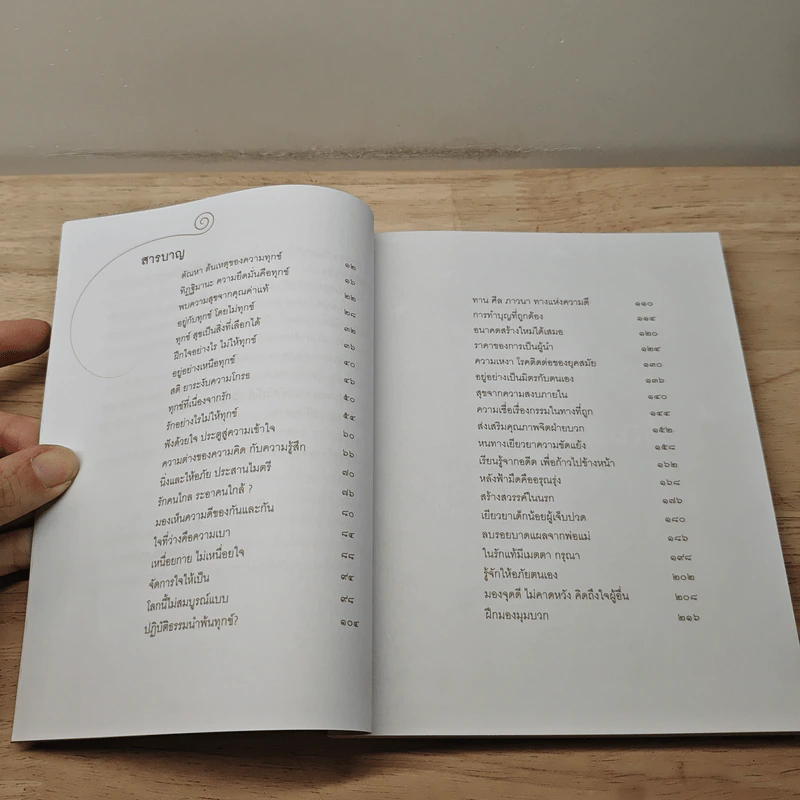 สารบาญ
ตัณหา ต้นเหตุของความทุกข์ ๑๒
ทิฏฐิมานะ ความยึดมั่นคือทุกข์ ๑๖
พบความสุขจากคุณค่าแท้ ๒๒
อยู่กับทุกข์ โดยไม่ทุกข์ ๒๘
ทุกข์ สุขเป็นสิ่งที่เลือกได้ ๓๒
ฝึกใจอย่างไร ไม่ให้ทุกข์ ๓๖
อยู่อย่างเหนือทุกข์ ๔๐
สติ ยาระงับความโกรธ ๔๖
ทุกข์ที่เนื่องจากรัก ๕๐
รักอย่างไรไม่ให้ทุกข์ ๕๔
ฟังด้วยใจ ประตูสู่ความเข้าใจ ๖๐
ความต่างของความคิด กับความรู้สึก ๖๖
นิ่งและให้อภัย ประสานไมตรี ๗๐
รักคนไกล ระอาคนใกล้ ? ๗๖
มองเห็นความดีของกันและกัน ๘๐
ใจที่ว่างคือความเบา ๘๔
เหนื่อยกาย ไม่เหนื่อยใจ ๘๘
จัดการใจให้เป็น ๙๔
โลกนี้ไม่สมบูรณ์แบบ ๙๘
ปฏิบัติธรรมนำพ้นทุกข์? ๑๐๔
ทาน ศีล ภาวนา ทางแห่งความดี ๑๑๐
การทำบุญที่ถูกต้อง ๑๑๔
อนาคตสร้างใหม่ได้เสมอ ๑๒๐
ราคาของการเป็นผู้นำ ๑๒๔
ความเหงา โรคติดต่อของยุคสมัย ๑๓๐
อยู่อย่างเป็นมิตรกับตนเอง ๑๓๖
สุขจากความสงบภายใน ๑๔๐
ความเชื่อเรื่องกรรมในทางที่ถูก ๑๔๔
ส่งเสริมคุณภาพจิตฝ่ายบวก ๑๕๒
หนทางเยียวยาความขัดแย้ง ๑๕๘
เรียนรู้จากอดีต เพื่อก้าวไปข้างหน้า ๑๖๒
หลังฟ้ามืดคืออรุณรุ่ง ๑๖๘
สร้างสวรรค์ในนรก ๑๗๖
เยียวยาเด็กน้อยผู้เจ็บปวด ๑๘๐
ลบรอยบาดแผลจากพ่อแม่ ๑๘๖
ในรักแท้มีเมตตา กรุณา ๑๙๘
รู้จักให้อภัยตนเอง ๒๐๒
มองจุดดี ไม่คาดหวัง คิดถึงใจผู้อื่น ๒๐๘
ฝึกมองมุมบวก ๒๑๖